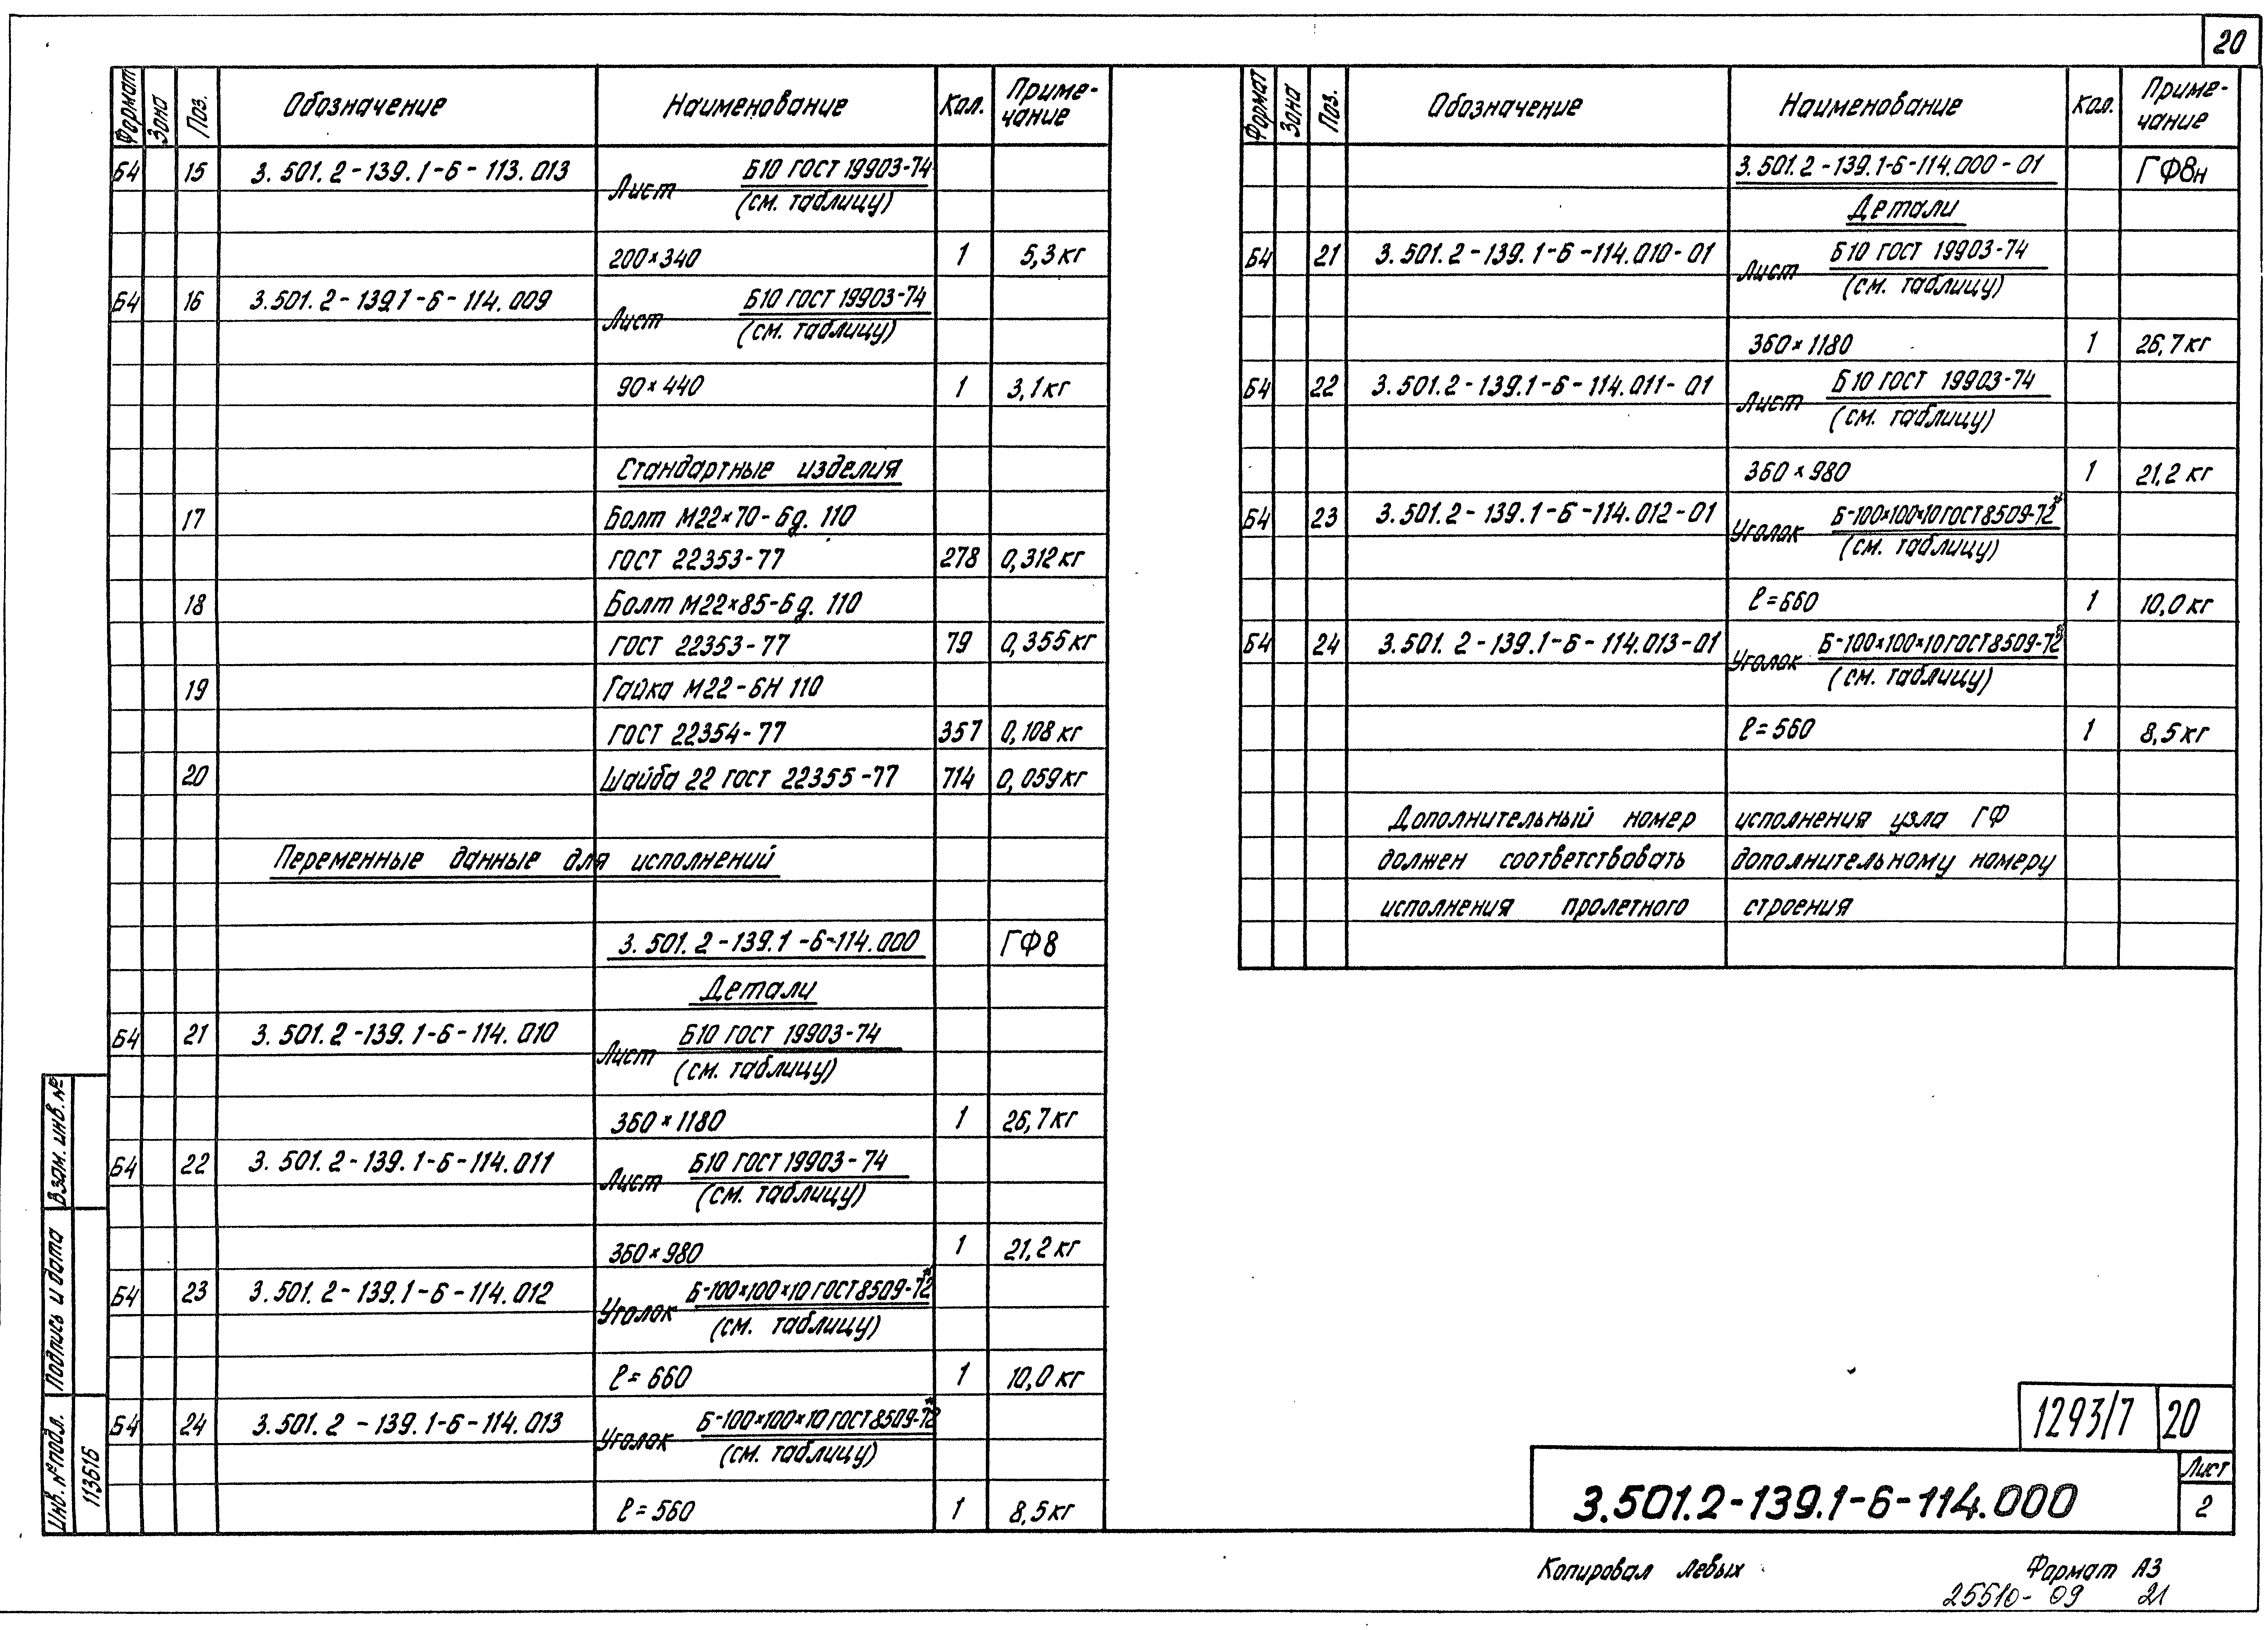 20
Формат Зона Поз. Обозначение Наименование Кол. Приме-
чание
Б4 15 3.501.2-139.1-6-113.013 Лист Б10 ГОСТ 19903-74
(см. таблицу)
200×340 1 5,3 кг
Б4 16 3.501.2-139.1-6-114.009 Лист Б10 ГОСТ 19903-74
(см. таблицу)
90×440 1 3,1 кг
Стандартные изделия
17 Болт М22×70-6g. 110
ГОСТ 22353-77 278 0,312 кг
18 Болт М22×85-6g. 110
ГОСТ 22353-77 79 0,355 кг
19 Гайка М22-6Н 110
ГОСТ 22354-77 357 0,108 кг
20 Шайба 22 ГОСТ 22355-77 714 0,059 кг
Переменные данные для исполнений
3.501.2-139.1-6-114.000 ГФ8
Детали
Б4 21 3.501.2-139.1-6-114.010 Лист Б10 ГОСТ 19903-74
(см. таблицу)
360×1180 1 26,7 кг
Б4 22 3.501.2-139.1-6-114.011 Лист Б10 ГОСТ 19903-74
(см. таблицу)
360×980 1 21,2 кг
Б4 23 3.501.2-139.1-6-114.012 Уголок Б-100×100×10 ГОСТ 8509-72*
(см. таблицу)
ℓ=660 1 10,0 кг
Б4 24 3.501.2-139.1-6-114.013 Уголок Б-100×100×10 ГОСТ 8509-72*
(см. таблицу)
ℓ=560 1 8,5 кг
Формат Зона Поз. Обозначение Наименование Кол. Приме-
чание
3.501.2-139.1-6-114.000-01 ГФ8н
Детали
Б4 21 3.501.2-139.1-6-114.010-01 Лист Б10 ГОСТ 19903-74
(см. таблицу)
360×1180 1 26,7 кг
Б4 22 3.501.2-139.1-6-114.011-01 Лист Б10 ГОСТ 19903-74
(см. таблицу)
360×980 1 21,2 кг
Б4 23 3.501.2-139.1-6-114.012-01 Уголок Б-100×100×10 ГОСТ 8509-72*
(см. таблицу)
ℓ=660 1 10,0 кг
Б4 24 3.501.2-139.1-6-114.013-01 Уголок Б-100×100×10 ГОСТ 8509-72*
(см. таблицу)
ℓ=560 1 8,5 кг
Дополнительный номер исполнения узла ГФ
должен соответствовать дополнительному номеру
исполнения пролетного строения
Взам. инв. №
Подпись и дата
Инв. № подл. 113616
1293/7 20
3.501.2-139.1-6-114.000
Лист
2
Копировал Левых Формат А3
25510-09 21